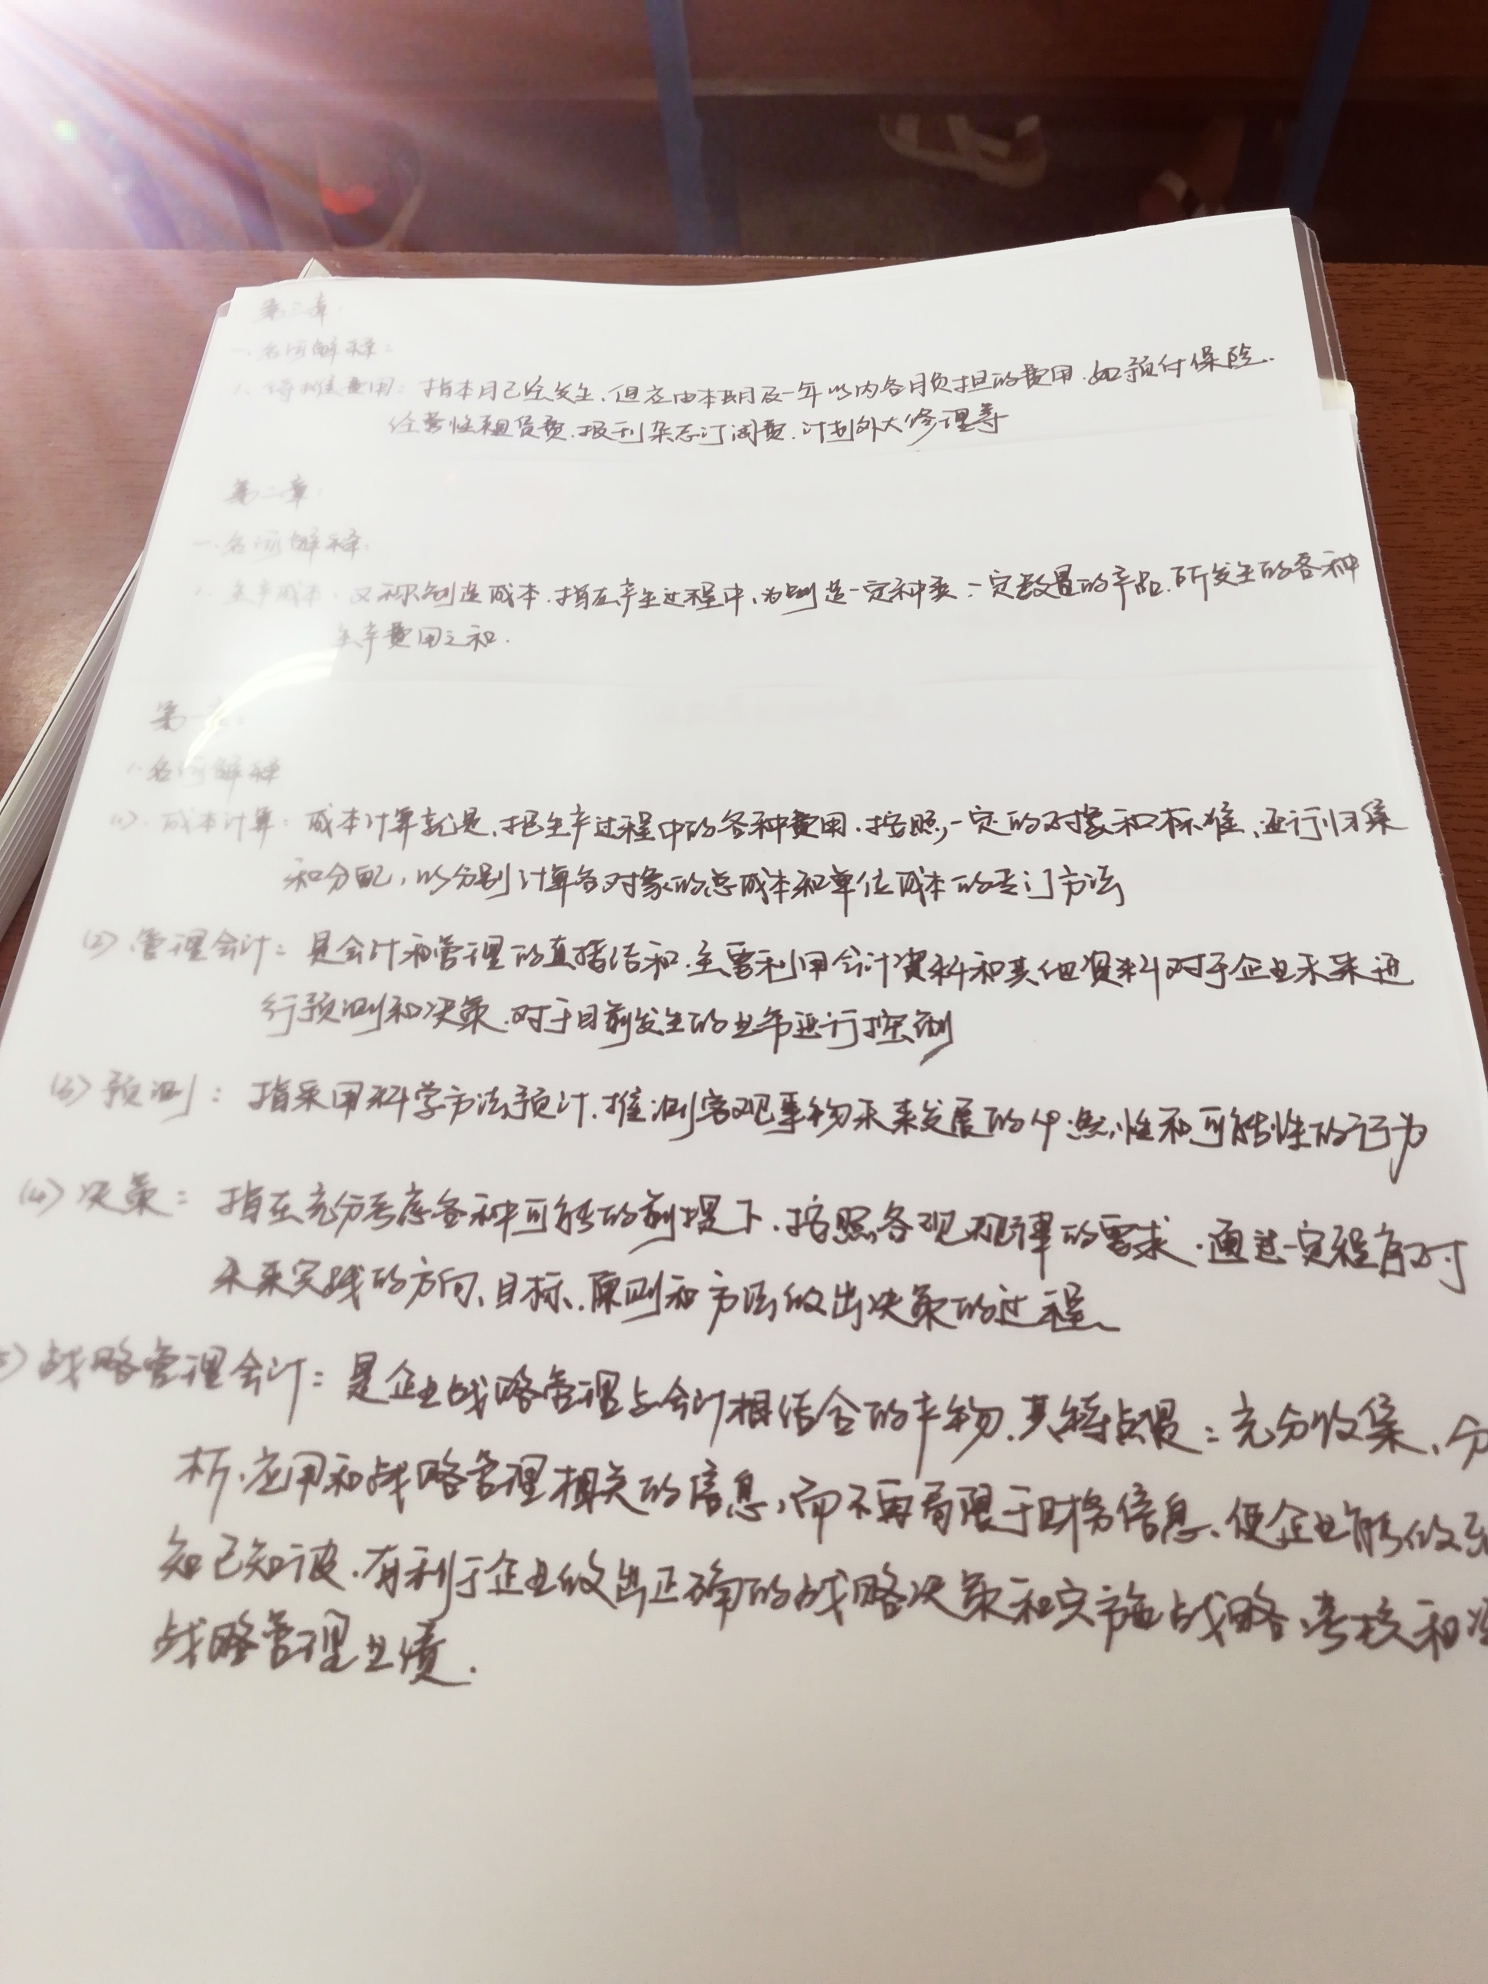 第三章:
一.名词解释:
1.待摊费用:指本月已经发生,但应由本月及一年以内各月负担的费用.如预付保险.
经营性租赁费.报刊杂志订阅费.计划外大修理等
第二章:
一.名词解释:
1.生产成本:又称制造成本.指在产生过程中,为制造一定种类、一定数量的产品.所发生的各种
生产费用之和.
第一章:
1.名词解释
(1).成本计算:成本计算就是,把生产过程中的各种费用.按照,一定的对象和标准、进行归集
和分配,以分别计算各对象的总成本和单位成本的专门方法
(2).管理会计:是会计和管理的直接结和.主要利用会计资料和其他资料对于企业未来进
行预测和决策.对于目前发生的业务进行控制
(3)预测:指采用科学方法预计.推测客观事物未来发展的必然性和可能性的行为
(4)决策:指在充分考虑各种可能的前提下.按照客观规律的要求.通过一定程序对
未来实践的方向、目标、原则和方法做出决策的过程、
战略管理会计:是企业战略管理与会计相结合的产物.其特点是:充分收集、分
析、应用和战略管理相关的信息,而不再局限于财务信息、使企业能做到
知己知彼.有利于企业做出正确的战略决策和实施战略、考核和
战略管理业绩.